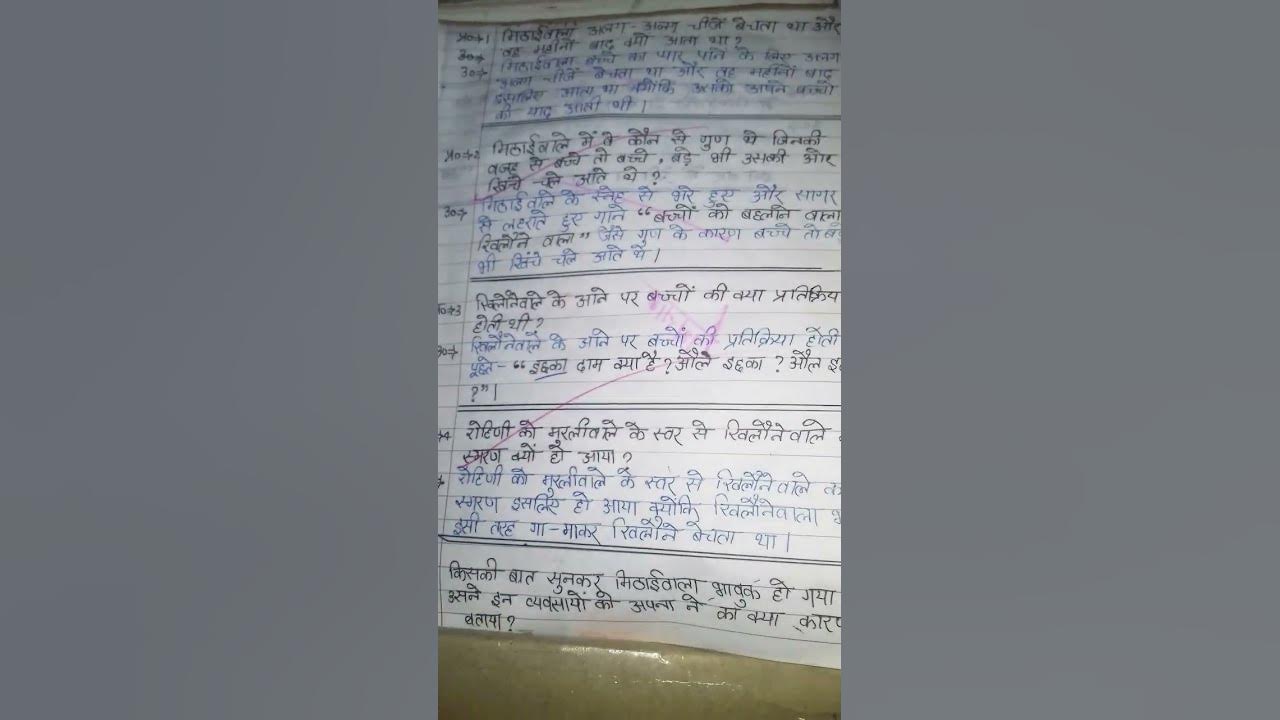 प्र०→1 मिठाईवाला अलग-अलग चीजें बेचता था और
वह महीनों बाद क्यों आता था?
उ०→ मिठाईवाला बच्चों का प्यार पाने के लिए अलग
अलग चीजें बेचता था और वह महीनों बाद
इसलिए आता था क्योंकि उसको अपने बच्चों
की याद आती थी।
प्र०→2 मिठाईवाले में वे कौन से गुण थे जिनकी
वजह से बच्चे तो बच्चे, बड़े भी उसकी और
खिंचे चले आते थे?
उ०→ मिठाईवाले के स्नेह से भरे हुए और सागर
से लहराते हुए गाने “बच्चों को बहलाने वाला
खिलौने वाला” जैसे गुण के कारण बच्चे तो बड़े
भी खिंचे चले आते थे।
→3 खिलौनेवाले के आने पर बच्चों की क्या प्रतिक्रिय
होती थी?
उ०→ खिलौनेवाले के आने पर बच्चों की प्रतिक्रिया होती
पूछते- “इछका दाम क्या है? औले इछका? औल इछ
?”।
→4 रोहिणी को मुरलीवाले के स्वर से खिलौनेवाले
स्मरण क्यों हो आया?
→ रोहिणी को मुरलीवाले के स्वर से खिलौनेवाले क
स्मरण इसलिए हो आया क्योंकि खिलौनेवाला भ
इसी तरह गा-माकर खिलौने बेचता था।
किसकी बात सुनकर मिठाईवाला भावुक हो गया
उसने इन व्यवसायों को अपना ने का क्या कार
बताया?